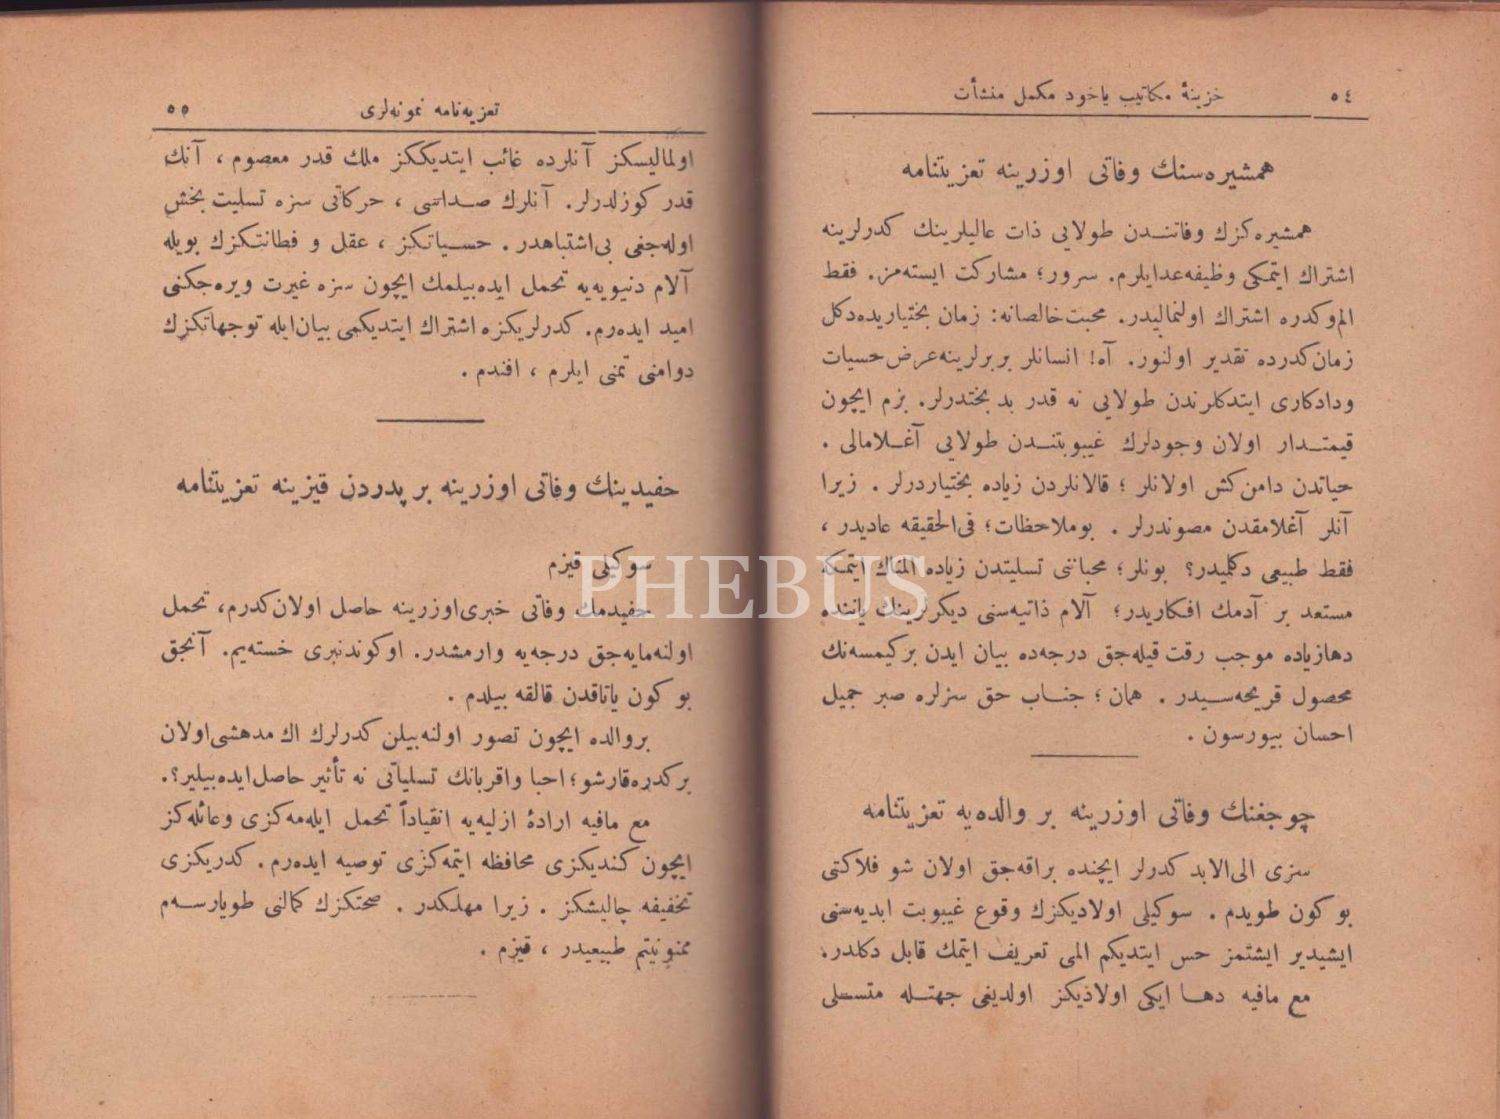 ٥٤ خزینهٔ مکاتیب یاخود مکمل منشأت
همشیره‌سنك وفاتی اوزرینه تعزیتنامه
همشیره‌کزك وفاتنـدن طولایی ذات عالیلرینك کدرلرینه
اشتراك ایتمکی وظیفه عد ایلرم. سرور؛ مشارکت ایسته‌مز. فقط
الم و کدره اشتراك اولنمالیدر. محبت خالصانه: زمان بختیاریده دکل
زمان کدرده تقدیر اولنور. آه! انسانلر بربرلرینه عرض حسیات
ودادکاری ایتدکلرندن طولایی نه قدر بد بختدرلر. بزم ایچون
قیمتـدار اولان وجودلرك غیبوبتنـدن طولایی آغـلامالی .
حیاتدن دامن‌کش اولانلر ؛ قالانلردن زیاده بختیاردرلر . زیرا
آنلر آغلامقدن مصوندرلر . بوملاحظات؛ فی‌الحقیقه عادیدر ،
فقط طبیعی دکلیدر؟ بونلر؛ محباتنی تسلیتدن زیاده المناك ایتمکه
مستعد بر آدمك افکاریدر؛ آلام ذاتیه‌سنی دیکرلرینك یاننده
دها زیاده موجب رقت قیله‌جق درجه‌ده بیان ایدن برکیمسه‌نك
محصول قریحه‌سـیدر . همان ؛ جنـاب حق سزلره صبر جمیل
احسان بیورسون .
چوجغنك وفاتی اوزرینه بر والده‌یه تعزیتنامه
سزی الی‌الابد کدرلر ایچنده براقه‌جق اولان شو فلاکتی
بو کون طویدم . سوکیلی اولادیکزك وقوع غیبوبت ابدیه‌سنی
ایشیدیر ایشتمز حس ایتدیکم المی تعریف ایتمك قابل دکلدر.
مع مافیه دهـا ایکی اولادیکز اولدیغی جهتـله متسـلی
تعزیه‌نامه نمونه‌لری ٥٥
اولمالیسکز آنلرده غائب ایتدیککز ملك قدر معصوم ، آنك
قدر کوزلدرلر. آنلرك صـداسی ، حرکاتی سزه تسلیت بخش
اوله‌جغی بی‌اشتباهدر . حسـیاتکز ، عقل و فطانتکزك بویله
آلام دنیویه‌یه تحمل ایده‌بیلمك ایچون سزه غیرت ویره‌جکنی
امید ایده‌رم. کدرلریکزه اشتراك ایتدیکمی بیان‌ایله توجهاتکزك
دوامنی تمنی ایلرم ، افندم .
حفیدینك وفاتی اوزرینه بر پدردن قیزینه تعزیتنامه
سوکیلی قیزم
حفیدمك وفاتی خبری اوزرینه حاصل اولان کدرم، تحمل
اولنه‌مایه‌جق درجه‌یه وارمشدر. اوکوندنبری خسته‌یم. آنجق
بو کون یاتاقدن قالقه بیلدم .
بروالده ایچون تصور اولنه‌بیلن کدرلرك اك مدهشی اولان
برکدره قارشو؛ احبا واقربانك تسلیاتی نه تأثیر حاصل ایده‌بیلیر؟.
مع مافیه ارادهٔ ازلیه‌یه انقیاداً تحمل ایله‌مه‌کزی وعائله‌کز
ایچون کندیکزی محافظه ایتمه‌کزی توصیه ایده‌رم. کدریکزی
تخفیفه چالیشکز . زیرا مهلکدر . صحتکزك کمالنی طویارسـه‌م
ممنونیتم طبیعیدر ، قیزم .
PHEBUS